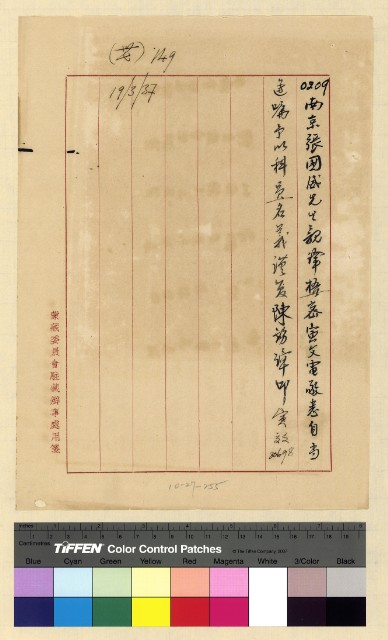 (芸) 1149
19/3/37
0209南京張國威先生親譯極密寅文電敬悉自當
遵囑予以科員名義謹复陳錫璋叩寅
20698
蒙藏委員會駐藏辦事處用箋
10-27-255
Inches
Centimetres
TIFFEN Color Control Patches
© The Tiffen Company, 2007
Blue Cyan Green Yellow Red Magenta White 3/Color Black